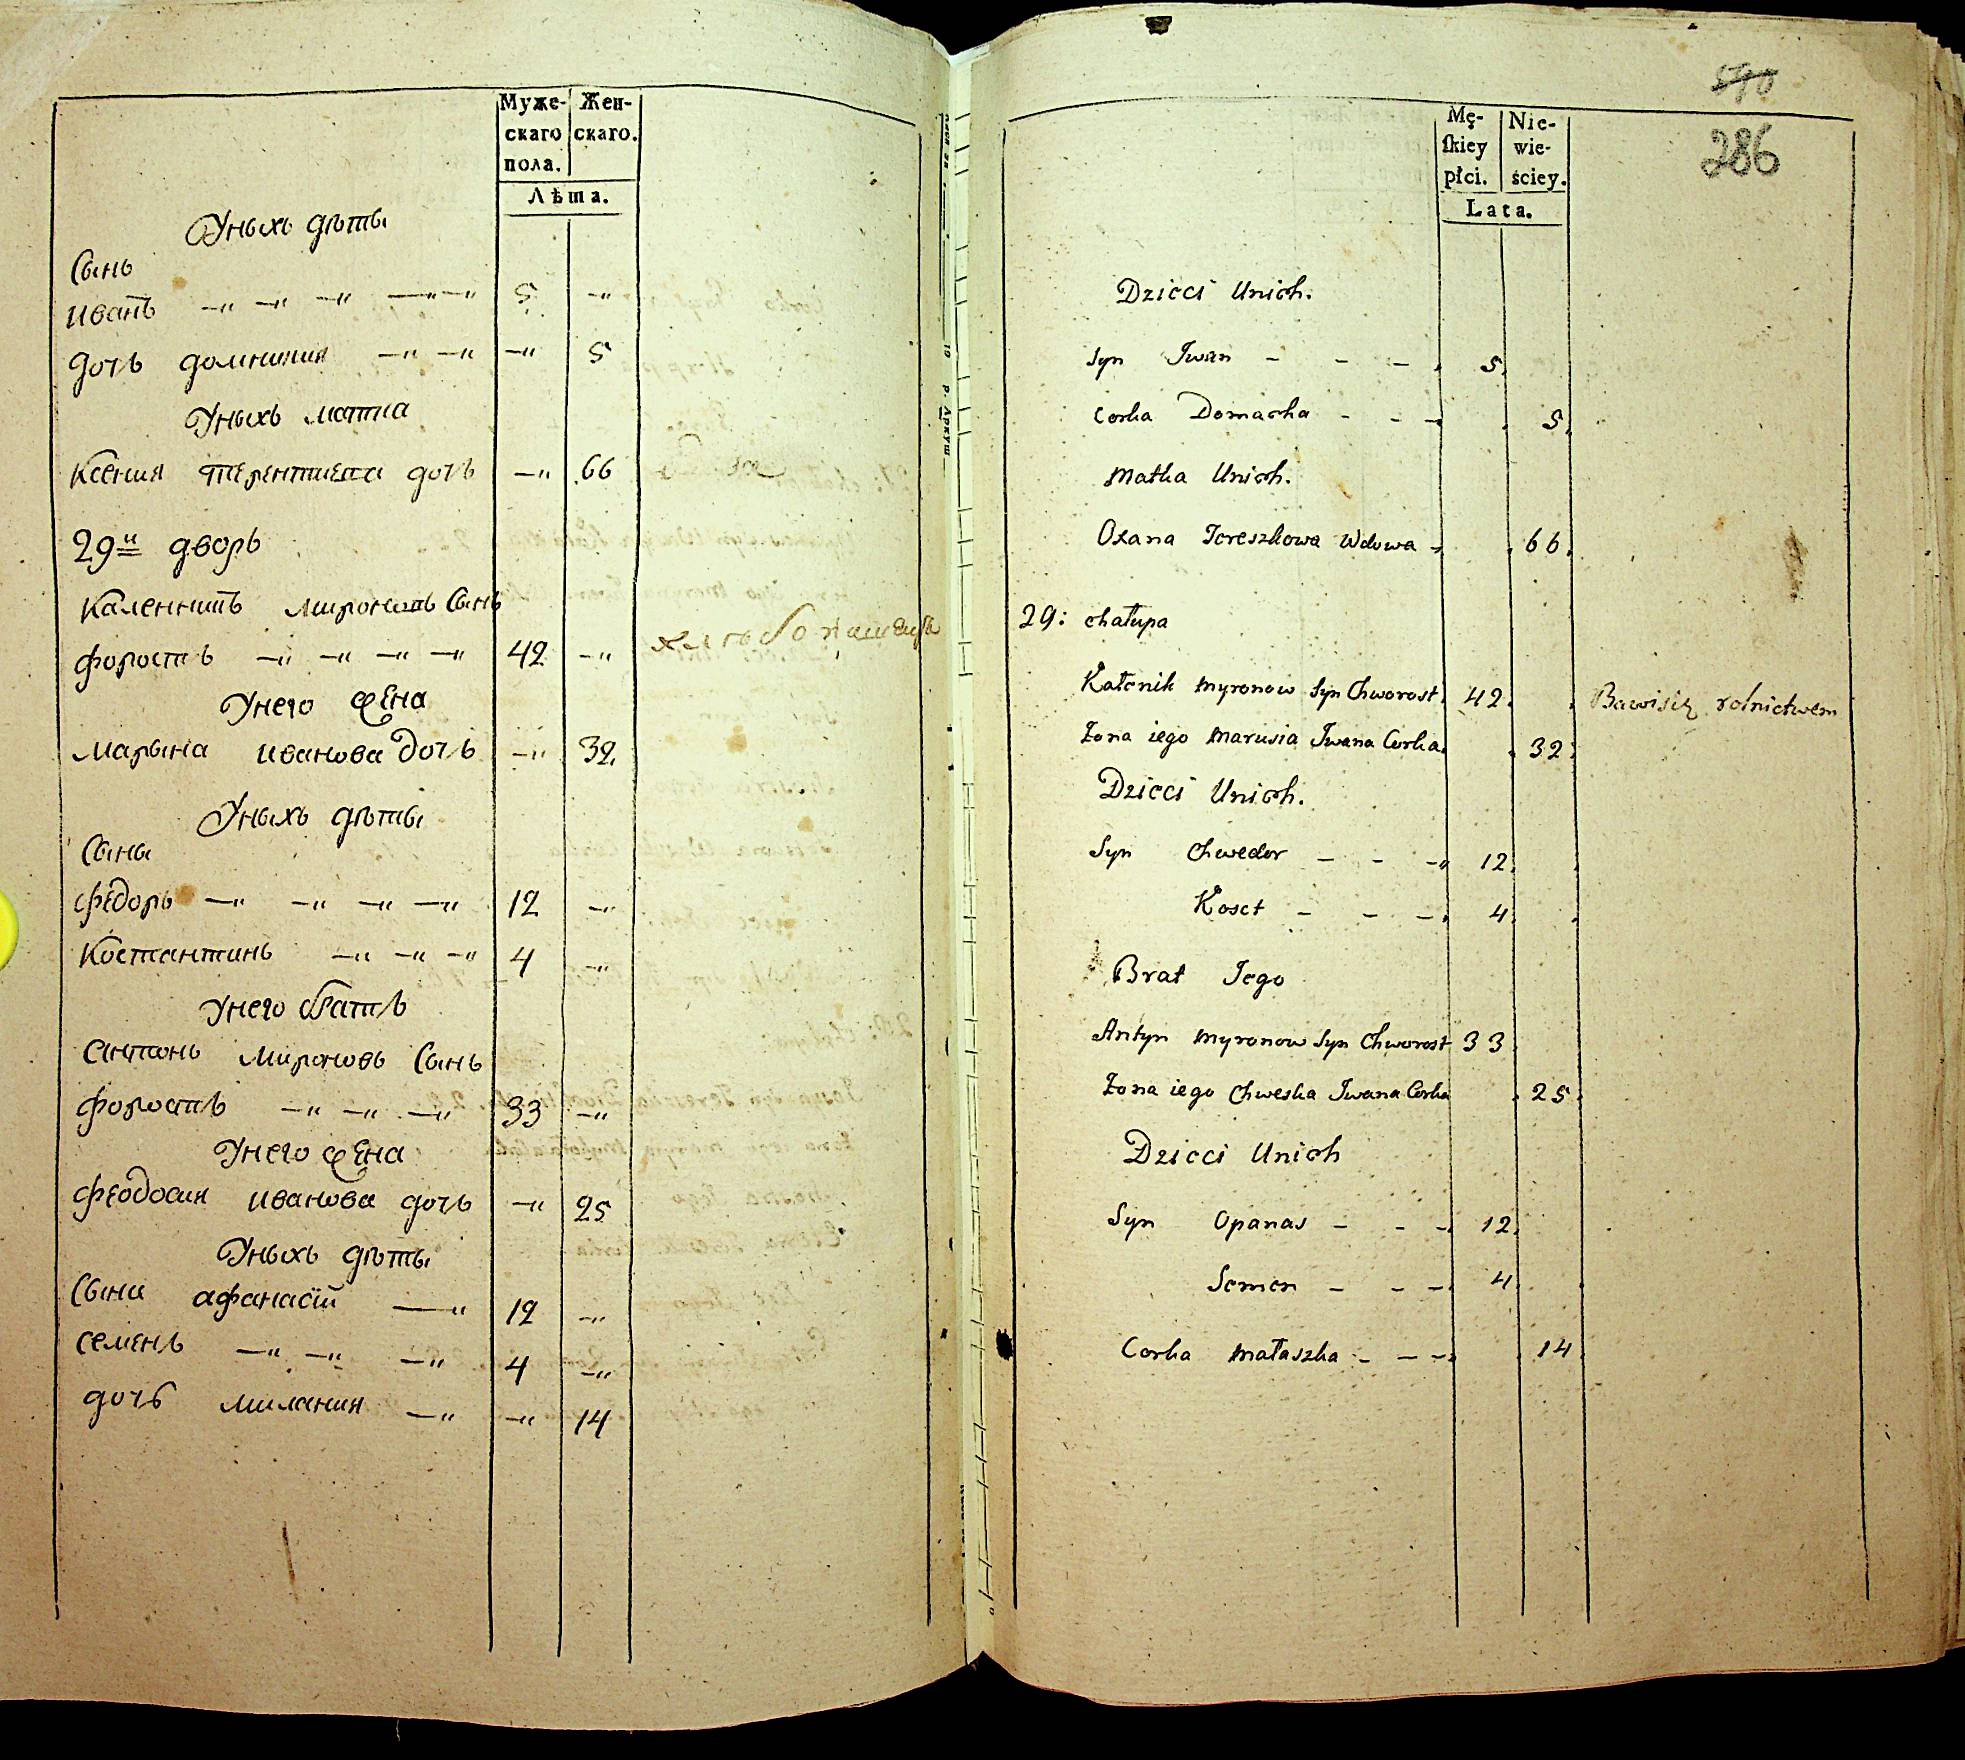 Муже- Жен-
скаго скаго.
пола.
Лѣта.
Уныхъ дѣти
Сынъ
Иванъ —„ —„ —„ —„—„ 5 —„
дочь домникия —„ —„ —„ 5
Уныхъ матка
Ксения терентиева дочь —„ 66
29й дворъ
Каленникъ мироновъ Сынъ
форостъ —„ —„ —„ —„ 42 —„ хлебопашецъ
Унего жена
марына иванова дочь —„ 32
Уныхъ дѣти
Сыны
федоръ —„ —„ —„ —„ 12 —„
Костантинъ —„ —„ —„ 4 —„
Унего братъ
антонъ мироновъ Сынъ
форостъ —„ —„ —„ 33 —„
Унего жена
феодосия иванова дочь —„ 25
Уныхъ дѣти
Сыни афанасий —„ 12 —„
семенъ —„ —„ —„ 4 —„
дочь милания —„ —„ 14
570
286
Mę- Nie-
ſkiey wie-
płci. ściey.
Lata.
Dzieci Unich.
Syn Iwan - - - 5.
Corka Domacha - - - 5.
Matka Unich.
Oxana Tereszkowa Wdowa - 66.
29: chałupa
Kałenik Myronow Syn Chworost. 42. Bawisię rolnictwem
Żona iego Marusia Iwana Corka. 32.
Dzieci Unich.
Syn Chwedor - - - 12.
Koset - - - 4.
Brat Iego
Antyn Myronow Syn Chworost 33.
Żona iego Chweska Iwana Corka 25.
Dzieci Unich
Syn Opanas - - - 12.
Semen - - - 4.
Corka Małaszka - - - 14.